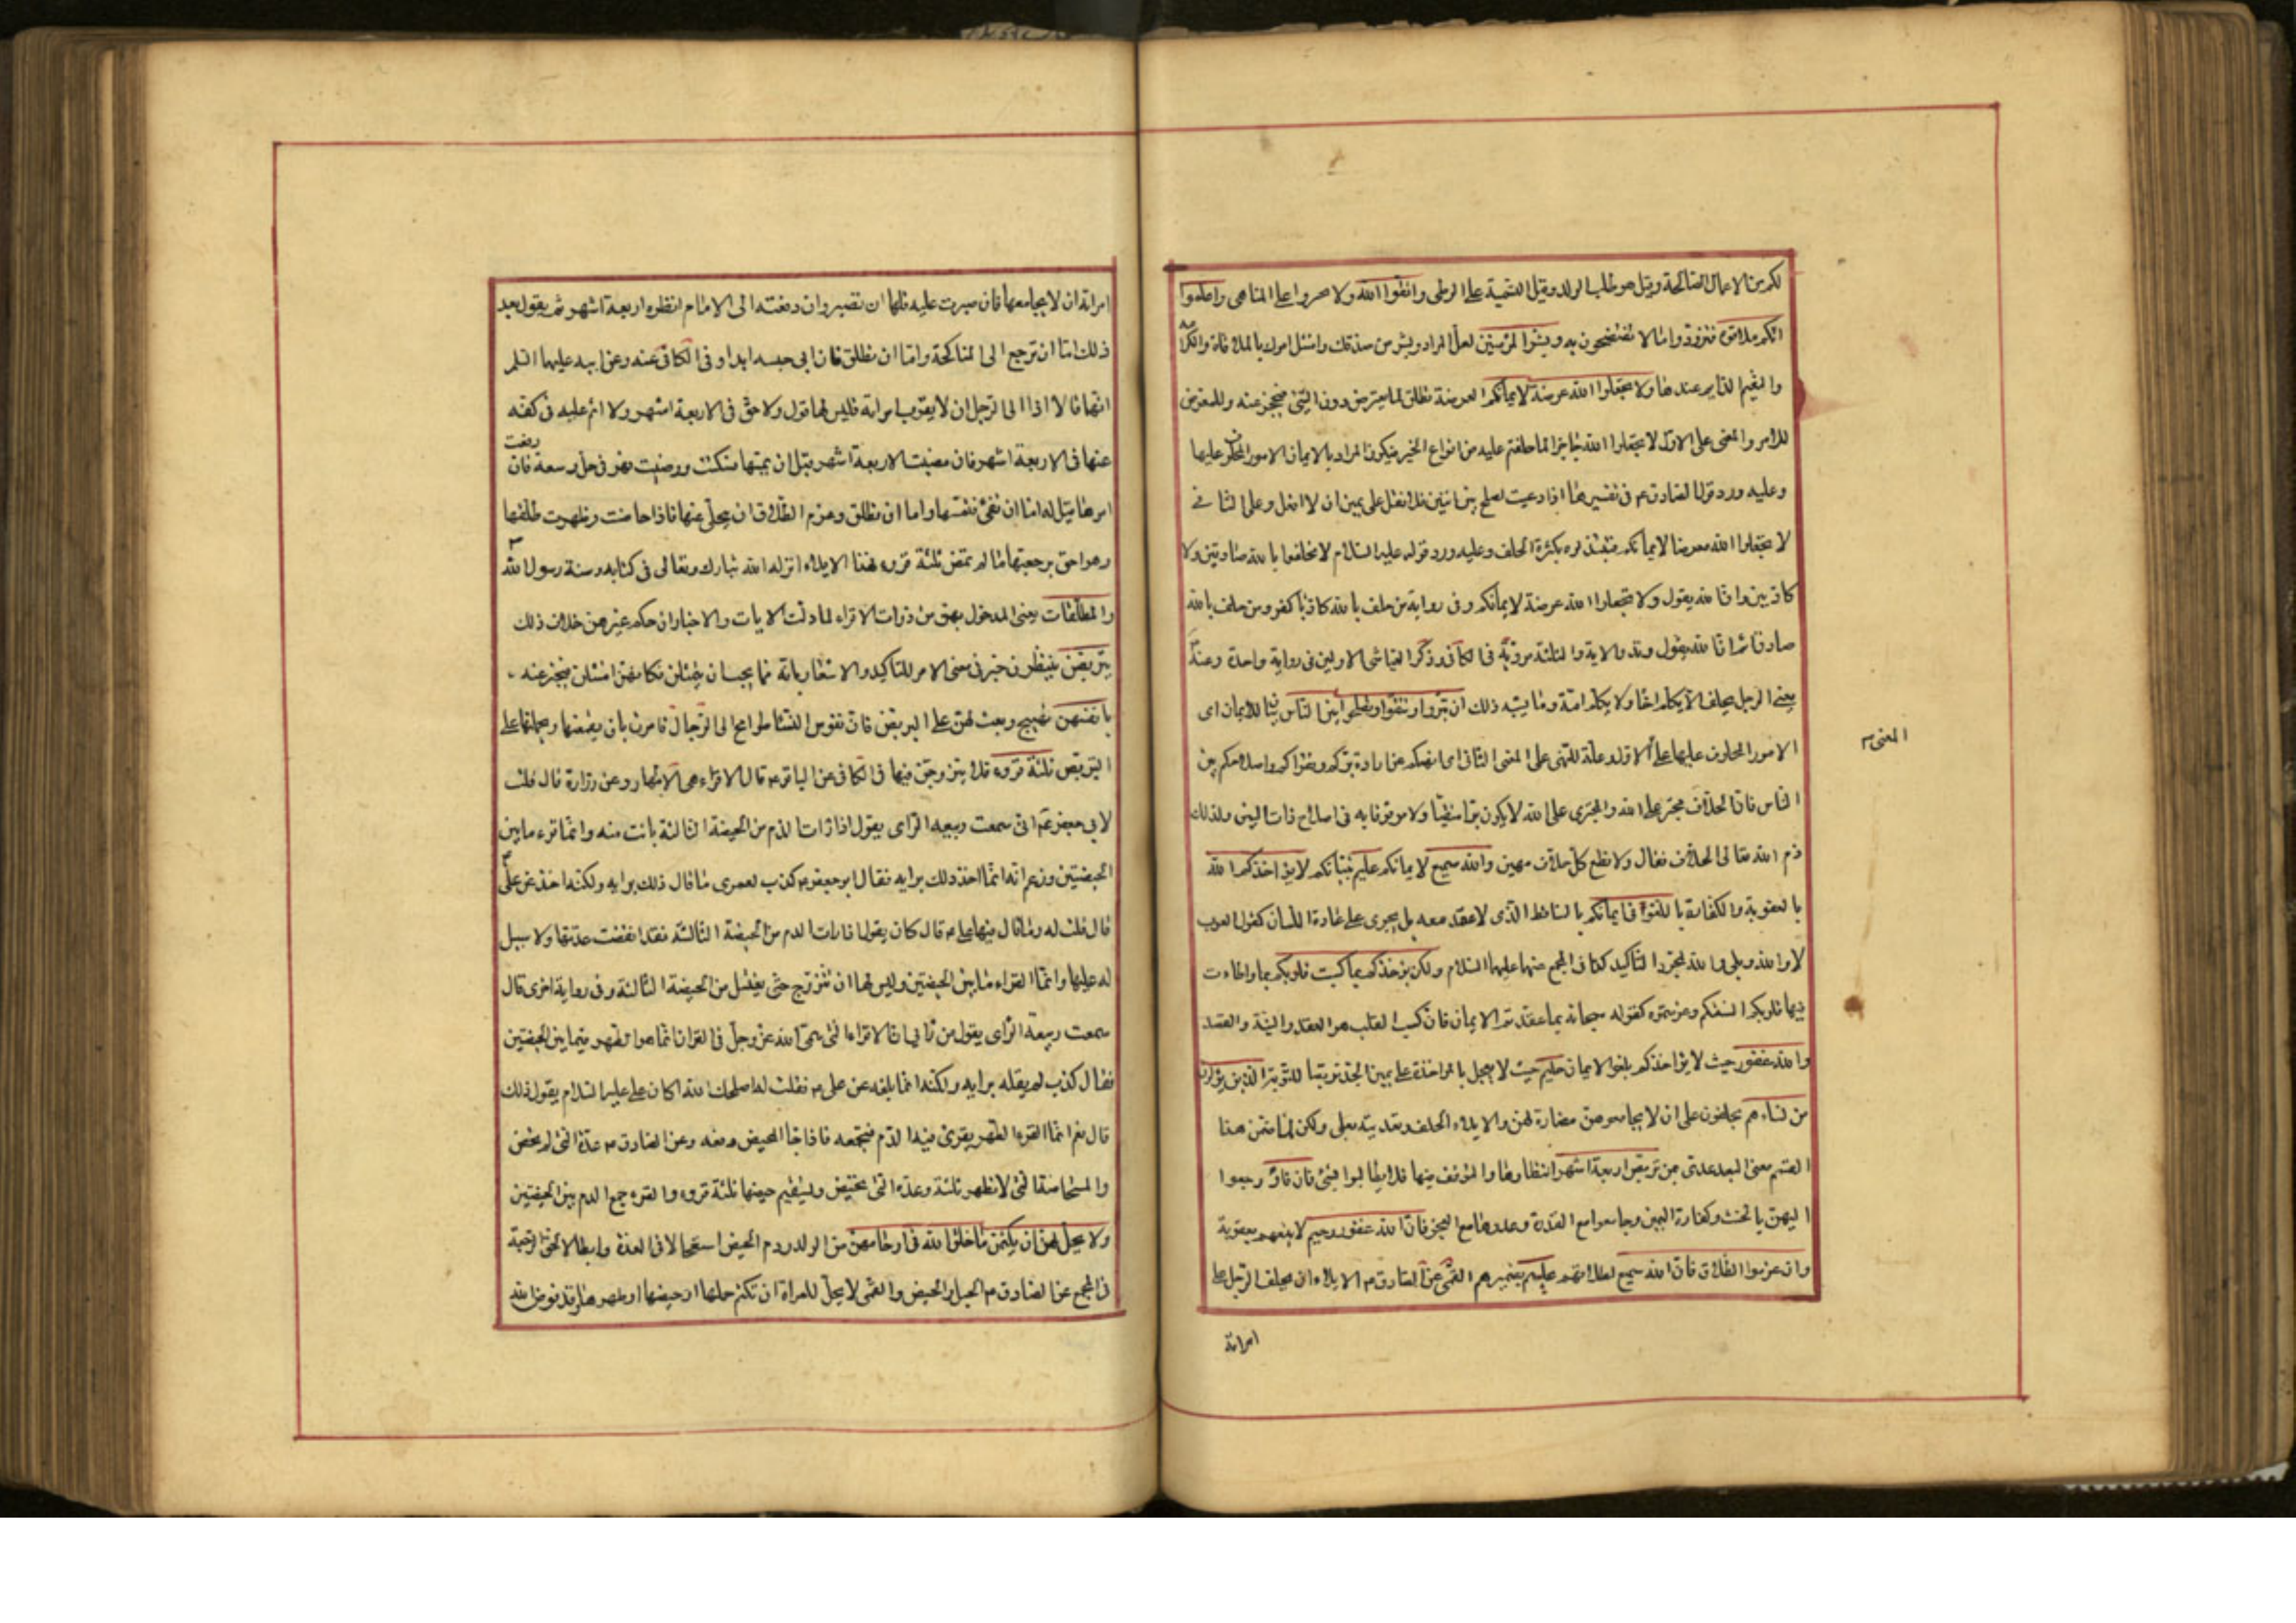 لكم من الاعمال الصالحة وقيل هو طلب الولد وقيل التسمية على الوطى واتقوا الله ولا تجروا على المناهى واعلموا
انكم ملاقوه فتزودوا ما لا تفتضحون به وبشر المؤمنين لعل المراد وبشر من صدقك وامتثل امرك بالملاقاة والكرامة
والنعيم الدايم عندها ولا تجعلوا الله عرضة لايمانكم العرضة تطلق لما يعترض دون الشئ فيحجز عنه وللمعرض
للامر والمعنى على الاول لا تجعلوا الله حاجزا لما حلفتم عليه من انواع الخير فيكون المراد بالايمان الامور المحلوف عليها
وعليه ورد قول الصادق ع فى تفسيرها اذا دعيت لصلح بين اثنين فلا تقل على يمين ان لا افعل وعلى الثانى
لا تجعلوا الله معرضا لايمانكم فتبتذلوه بكثرة الحلف وعليه ورد قوله عليه السلام لا تحلفوا بالله صادقين ولا
كاذبين فان الله يقول ولا تجعلوا الله عرضة لايمانكم وفى رواية من حلف بالله كاذبا كفر ومن حلف بالله
صادقا اثم ان الله يقول وتلا الاية والثلثة مروية فى الكافى وذكر العياشى الاولين فى رواية واحدة وعنه
يعنى الرجل يحلف الا يكلم اخاه ولا يكلم امه وما يشبه ذلك ان تبروا وتتقوا وتصلحوا بين الناس بيان للايمان اى
الامور المحلوف عليها على الاول وعلة للنهى على المعنى الثانى اى انهيكم عنه ارادة بركم وتقواكم واصلاحكم بين
المعنى
الناس فان الحلاف مجتر على الله والمجترى على الله لا يكون برا متقيا ولا موثوقا به فى اصلاح ذات البين ولذلك
ذم الله تعالى الحلاف فقال ولا تطع كل حلاف مهين والله سميع لايمانكم عليم بنياتكم لا يؤاخذكم الله
بالعقوبة والكفارة باللغو فى ايمانكم بالساقط الذى لا عقد معه بل يجرى على عادة اللسان كقول العرب
لا والله وبلى والله لمجرد التاكيد كذا فى المجمع عنهما عليهما السلام ولكن يؤاخذكم بما كسبت قلوبكم بما واطات
فيها قلوبكم السنتكم وعزمتموه كقوله سبحانه بما عقدتم الايمان فان كسب القلب هو العقد والنية والقصد
والله غفور حيث لا يؤاخذكم بلغو الايمان حليم حيث لا يعجل بالمؤاخذة على يمين الجد تربصا للتوبة الذين يؤلون
من نساءهم يحلفون على ان لا يجامعوهن مضارة لهن والايلاء الحلف وتعديته بعلى ولكن لما ضمن هذا
القسم معنى البعد عدى بمن تربص اربعة اشهر انتظارها والتوقف فيها فلا يطالبوا بشئ فان فاؤ رجعوا
اليهن بالحنث وكفارة اليمين وجامعوا مع القدرة ووعدوها مع العجز فان الله غفور رحيم لا يتبعهم بعقوبة
وان عزموا الطلاق فان الله سميع لطلاقهم عليم بضميرهم القمى عن الصادق ع الايلاء ان يحلف الرجل على
امراته
امراته ان لا يجامعها فان صبرت عليه فلها ان تصبر وان رفعته الى الامام انظره اربعة اشهر ثم يقول بعد
ذلك اما ان ترجع الى المناكحة واما ان تطلق فان ابى حبسه ابدا وفى الكافى عنه وعن ابيه عليهما السلم
انهما قالا اذا الى الرجل ان لا يقرب امراته فليس لها قول ولا حق فى الاربعة اشهر ولا اثم عليه فى كفه
عنها فى الاربعة اشهر فان مضت الاربعة اشهر قبل ان يمسها فسكتت ورضيت فهو فى حل وسعة فان رفعت
امرها قيل له اما ان تفئ فتمسها واما ان تطلق وعزم الطلاق ان يخلى عنها فاذا حاضت وطهرت طلقها
وهو احق برجعتها ما لم تمض ثلثة قروء فهذا الايلاء انزله الله تبارك وتعالى فى كتابه وسنة رسول الله
والمطلقات يعنى المدخول بهن من ذوات الاقراء لما دلت الايات والاخبار ان حكم غيرهن خلاف ذلك
يتربصن ينتظرن خبر فى معنى الامر للتاكيد والاشعار بانه مما يجب ان يمتثلن فكانهن امتثلن فيخبر عنه
بانفسهن تهييج وبعث لهن على التربص فان نفوس النساء طوامح الى الرجال فامرن بان يقمعنها ويحملنها على
التربص ثلثة قروء فلا يتزوجن فيها فى الكافى عن الباقر ع قال الاقراء هى الاطهار وعن زرارة قال قلت
لابى جعفر ع انى سمعت ربيعة الراى يقول اذا رات الدم من الحيضة الثالثة بانت منه وانما القرء ما بين
الحيضتين وزعم انه انما اخذ ذلك برايه فقال ابو جعفر ع كذب لعمرى ما قال ذلك برايه ولكنه اخذه عن على
قال قلت له وما قال فيها على ع قال كان يقول اذا رات الدم من الحيضة الثالثة فقد انقضت عدتها ولا سبيل
له عليها وانما القراء ما بين الحيضتين وليس لها ان تتزوج حتى يغتسل من الحيضة الثالثة وفى رواية اخرى قال
سمعت ربيعة الراى يقول من رايى ان الاقراء التى سمى الله عز وجل فى القران انما هو الطهر فيما بين الحيضتين
فقال كذب لم يقله برايه ولكنه انما بلغه عن على ع فقلت له اصلحك الله اكان على عليه السلام يقول ذلك
قال نعم انما القرء الطهر يقرئ فيه الدم فيجمعه فاذا جا المحيض دفعه وعن الصادق ع عدة التى لم تحض
والمستحاضة التى لا تطهر ثلثة وعدة التى تحيض ويستقيم حيضها ثلثة قروء والقرء جمع الدم بين الحيضتين
ولا يحل لهن ان يكتمن ما خلق الله فى ارحامهن من الولد ودم الحيض استعجالا فى العدة وابطالا لحق الرجعة
فى المجمع عن الصادق ع الحبل والحيض والقمى لا يحل للمراة ان تكتم حملها او حيضها او طهرها وقد فوض الله